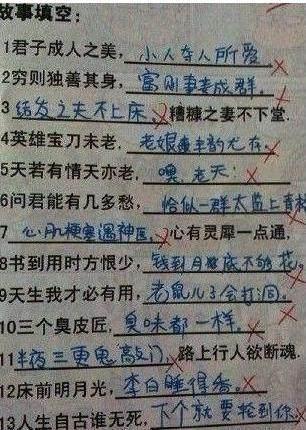 故事填空:
1君子成人之美,小人夺人所爱
2穷则独善其身,富则妻妾成群.
3结发之夫不上床,糟糠之妻不下堂.
4英雄宝刀未老,老娘风韵尤存.
5天若有情天亦老,噢,老天!
6问君能有几多愁,恰似一群太监上青楼
7心肌梗塞遇神医,心有灵犀一点通,
8书到用时方恨少,钱到月底不够花.
9天生我才必有用,老鼠儿子会打洞.
10三个臭皮匠,臭味都一样.
11半夜三更鬼敲门,路上行人欲断魂.
12床前明月光,李白睡得香.
13人生自古谁无死,下个就要轮到你.